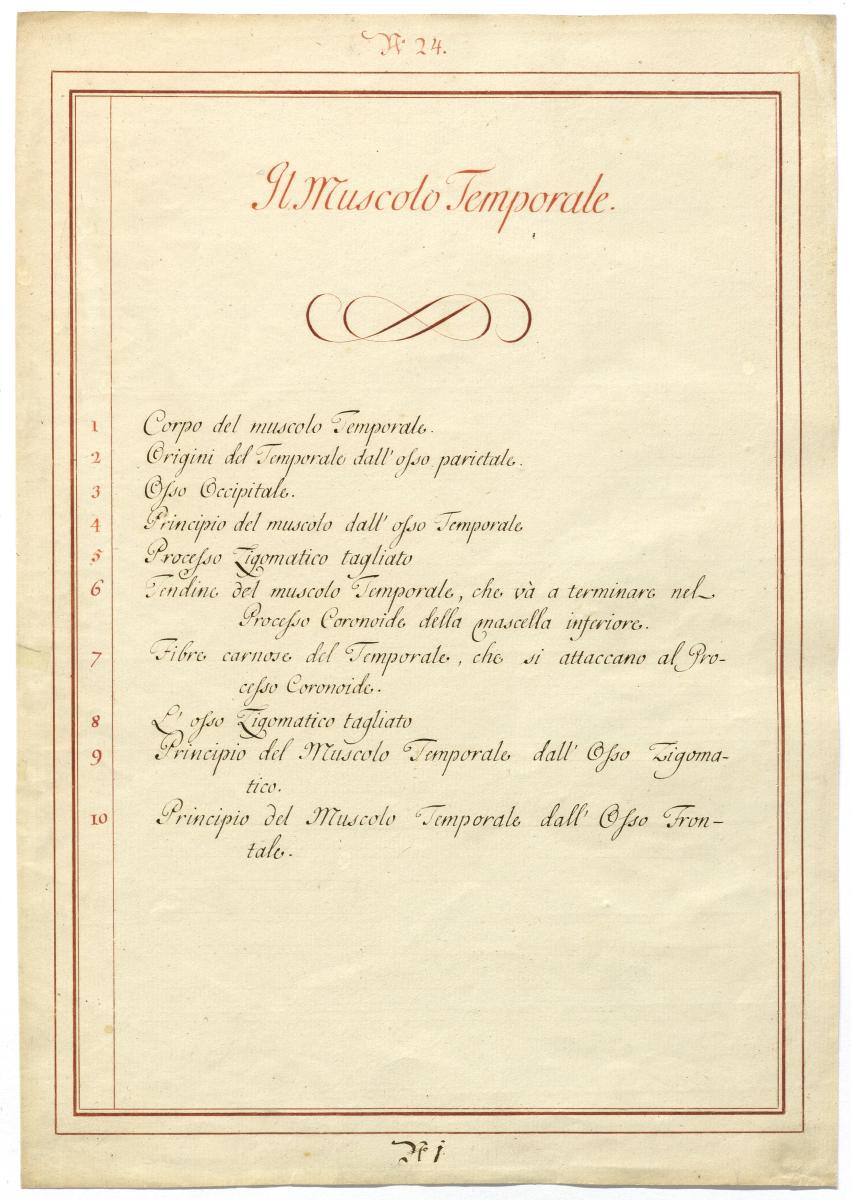 N.º 24.
Il Muscolo Temporale.
1 Corpo del muscolo Temporale.
2 Origini del Temporale dall' osso parietale.
3 Osso Occipitale.
4 Principio del muscolo dall' osso Temporale
5 Processo Zigomatico tagliato
6 Tendine del muscolo Temporale, che và a terminare nel
Processo Coronoide della mascella inferiore.
7 Fibre carnose del Temporale, che si attaccano al Pro-
cesso Coronoide.
8 L' osso Zigomatico tagliato
9 Principio del Muscolo Temporale dall' Osso Zigoma-
tico.
10 Principio del Muscolo Temporale dall' Osso Fron-
tale.
Nº 1